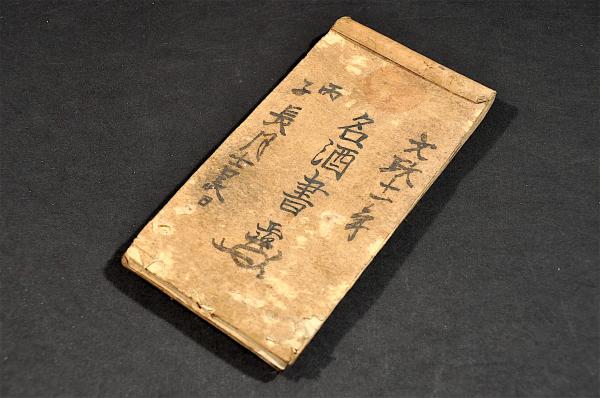 文政十一年
名酒書覚
丙子
長月吉日